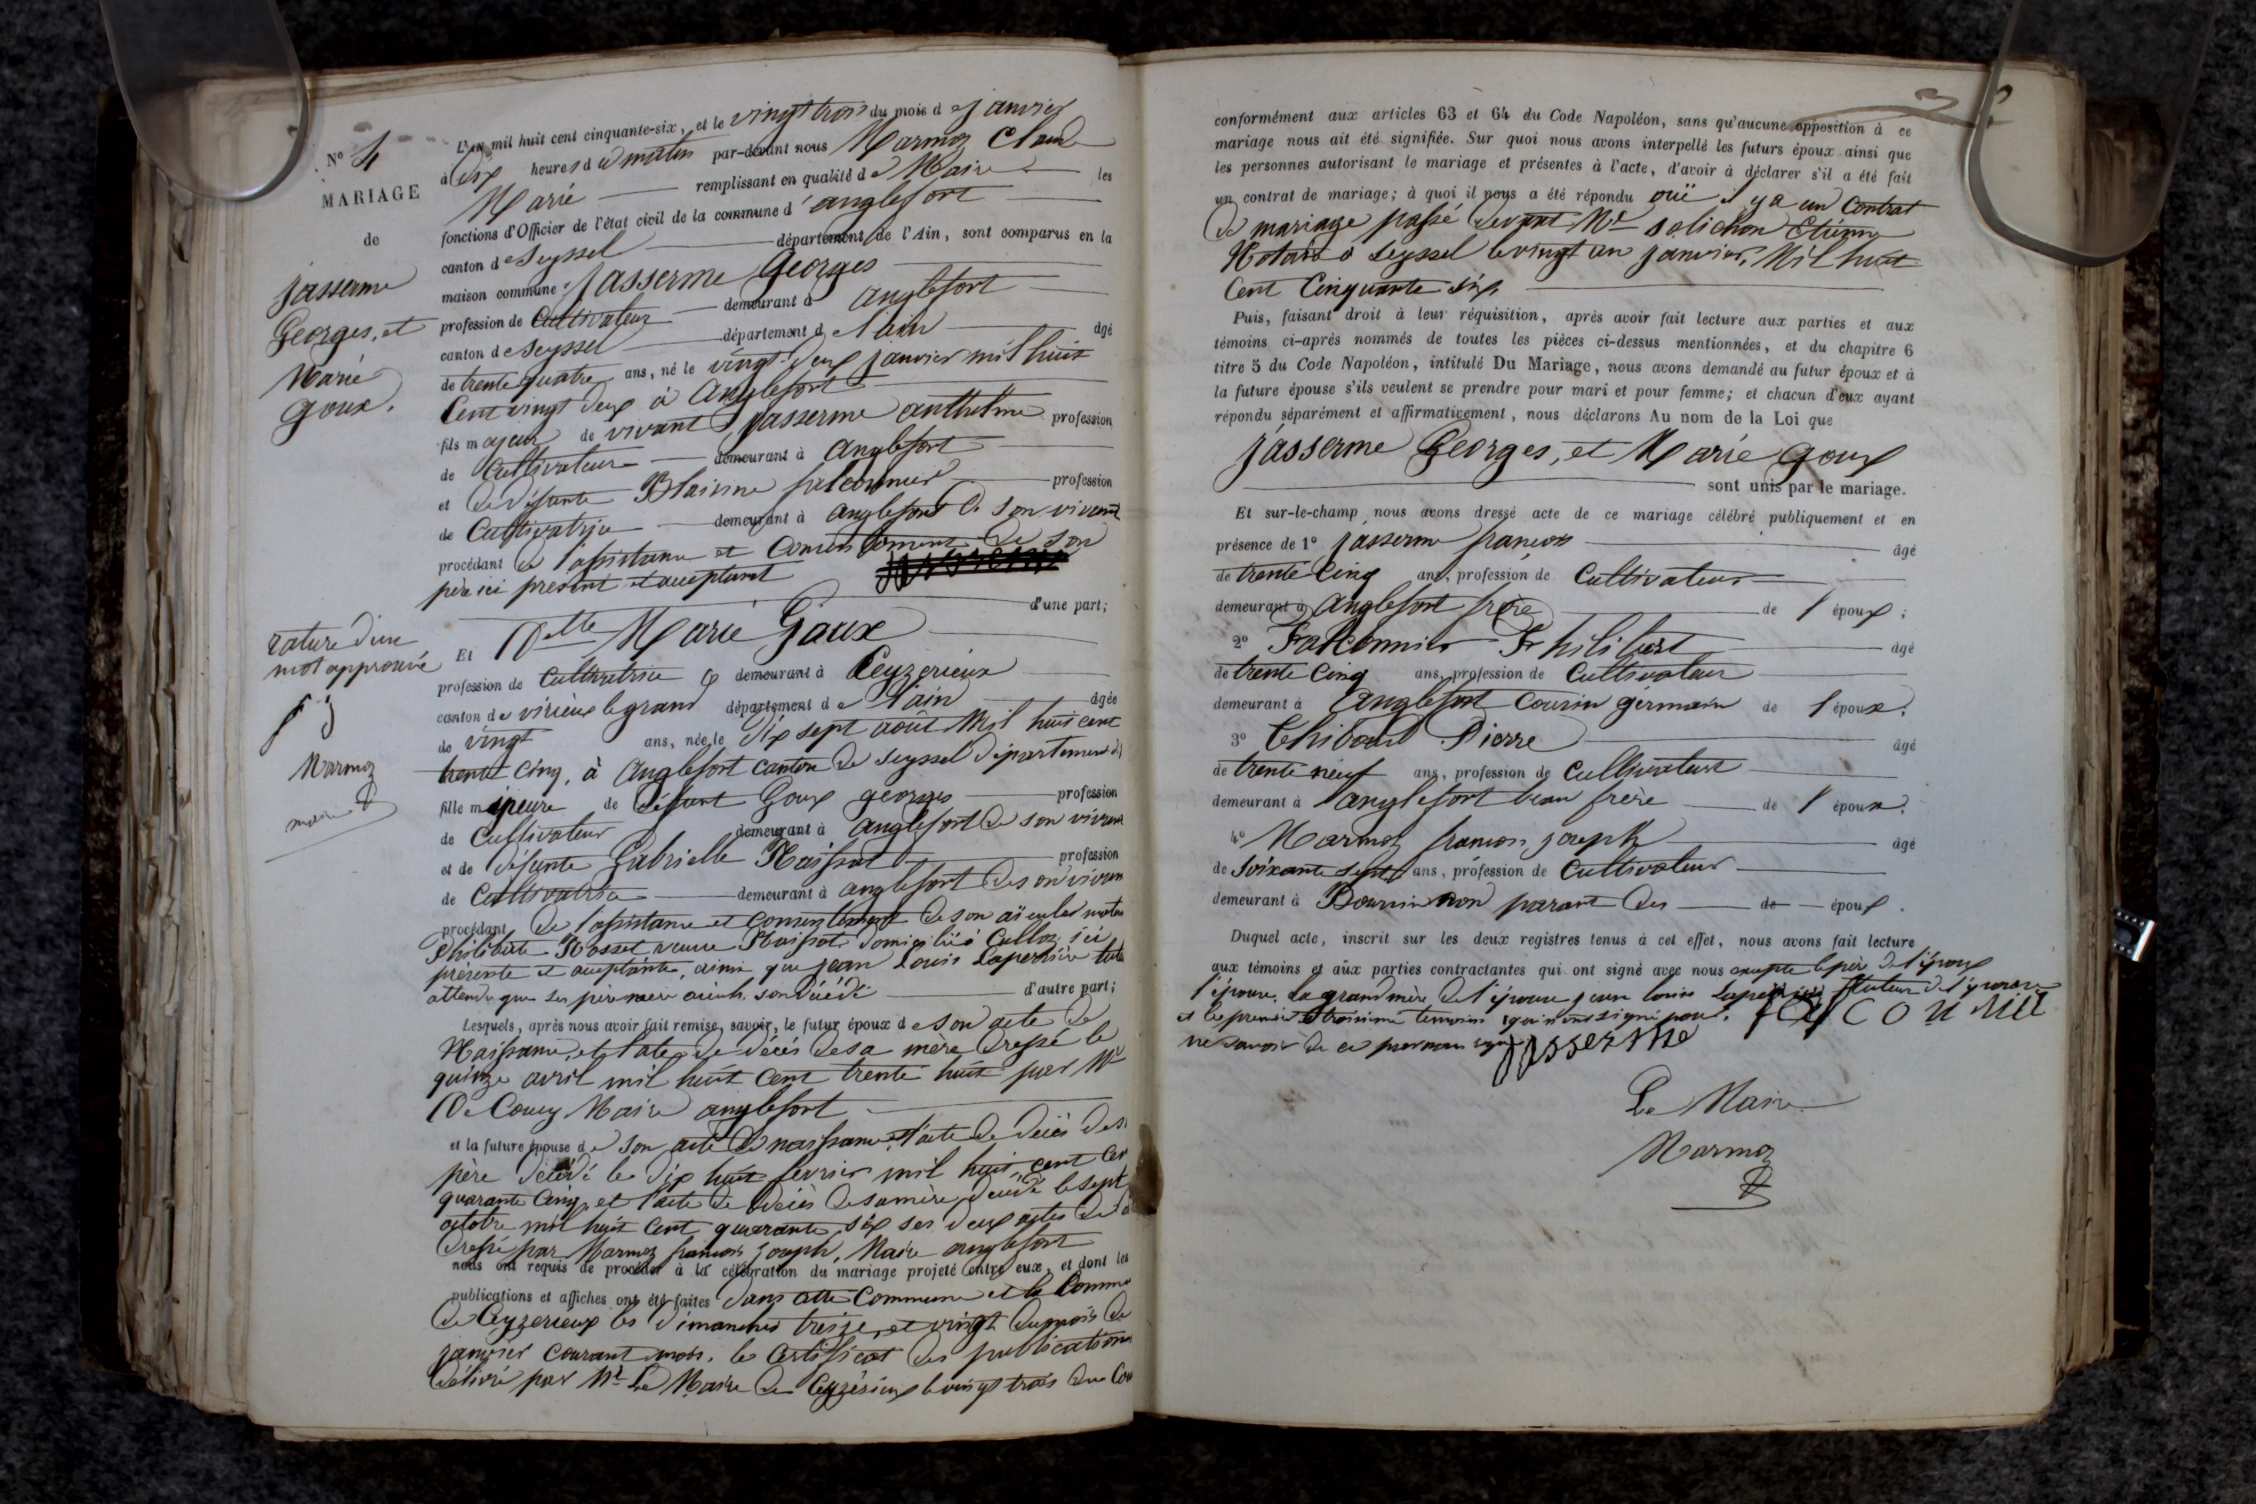 N° 4
MARIAGE
de
Jasserme
Georges, et
Marie
Goux.
L'an mil huit cent cinquante-six, et le vingt trois du mois de janvier
à dix heures du matin par-devant nous Marmoz Claude
Marie remplissant en qualité de Maire les
fonctions d'Officier de l'état civil de la commune d'anglefort
canton de Seyssel département de l'Ain, sont comparus en la
maison commune: Jasserme Georges
profession de Cultivateur demeurant à anglefort
canton de Seyssel département de l'ain âgé
de trente quatre ans, né le vingt deux janvier mil huit
Cent vingt deux à Anglefort
fils majeur de vivant Jasserme anthelme profession
de Cultivateur demeurant à anglefort
et de défunte falconnier profession
de Cultivatrice demeurant à anglefort de son vivant
procédant de l'assistance et Consentement de son
père ici présent et acceptant
d'une part;
rature d'un
mot approuvé
Marmoz
maire
Et Delle Marie Goux
profession de Cultivatrice demeurant à Ceyzerieux
canton de virieux le grand département de l'ain âgée
de vingt ans, née le dix sept août Mil huit cent
trente cinq, à Anglefort canton de Seyssel département d
fille mineure de défunt Goux georges profession
de Cultivateur demeurant à anglefort de son vivan
et de défunte Gabrielle profession
de Cultivatrice demeurant à anglefort de son vivan
procédant de l'assistance et consentement de son aïeule mater
Philiberte Rosset veuve domiciliée à Culloz ici
présente et acceptante, ainsi que jean Louis
attendu que ses père mère aïeuls son décédé d'autre part;
Lesquels, après nous avoir fait remise, savoir, le futur époux de son acte de
Naissance, et l'acte de décès de sa mère dressé le
quinze avril mil huit cent trente huit par Mr
De Coucy Maire anglefort
et la future épouse de son acte de naissance, l'acte de décès de s
père décédé le dix huit fevrier mil huit cent
quarante cinq, et l'acte de décès de sa mère, décédé le sept
octobre mil huit Cent quarante six ses deux actes de
dressé par Marmoz françois joseph, Maire anglefort
nous ont requis de procéder à la célébration du mariage projeté entre eux, et dont les
publications et affiches ont été faites dans cette Commune et la Commu
de Ceyzerieux les dimanches treize, et vingt du mois de
janvier courant mois, le Certificat des publications
délivré par Mr Le Maire de Ceyzérieux le vingt trois du Cou
conformément aux articles 63 et 64 du Code Napoléon, sans qu'aucune opposition à ce
mariage nous ait été signifiée. Sur quoi nous avons interpellé les futurs époux ainsi que
les personnes autorisant le mariage et présentes à l'acte, d'avoir à déclarer s'il a été fait
un contrat de mariage; à quoi il nous a été répondu ouï il y a un Contrat
de mariage passé devant Me solichon Etienne
Notaire à Seyssel le vingt un janvier, Mil huit
Cent Cinquante six
Puis, faisant droit à leur réquisition, après avoir fait lecture aux parties et aux
témoins ci-après nommés de toutes les pièces ci-dessus mentionnées, et du chapitre 6
titre 5 du Code Napoléon, intitulé Du Mariage, nous avons demandé au futur époux et à
la future épouse s'ils veulent se prendre pour mari et pour femme; et chacun d'eux ayant
répondu séparément et affirmativement, nous déclarons Au nom de la Loi que
Jasserme Georges, et Marie Goux
sont unis par le mariage.
Et sur-le-champ nous avons dressé acte de ce mariage célébré publiquement et en
présence de 1° Jasserme françois âgé
de trente Cinq ans, profession de Cultivateur
demeurant à anglefort frère de l'époux;
2° Falconnier Philibert âgé
de trente Cinq ans, profession de Cultivateur
demeurant à Anglefort Cousin germain de l'époux;
3° Thibaud Pierre âgé
de trente neuf ans, profession de Cultivateur
demeurant à anglefort beau frère de l'époux;
4° Marmoz françois joseph âgé
de soixante sept ans, profession de Cultivateur
demeurant à non parant des de époux.
Duquel acte, inscrit sur les deux registres tenus à cet effet, nous avons fait lecture
aux témoins et aux parties contractantes qui ont signé avec nous excepté le père de l'époux
l'épouse, la grand mère de l'épouse, jean louis tuteur de l'épouse
et le premier et troisième temoins qui n'ont signé pour
ne savoir de ce
Jasserme
Le Maire
Marmoz